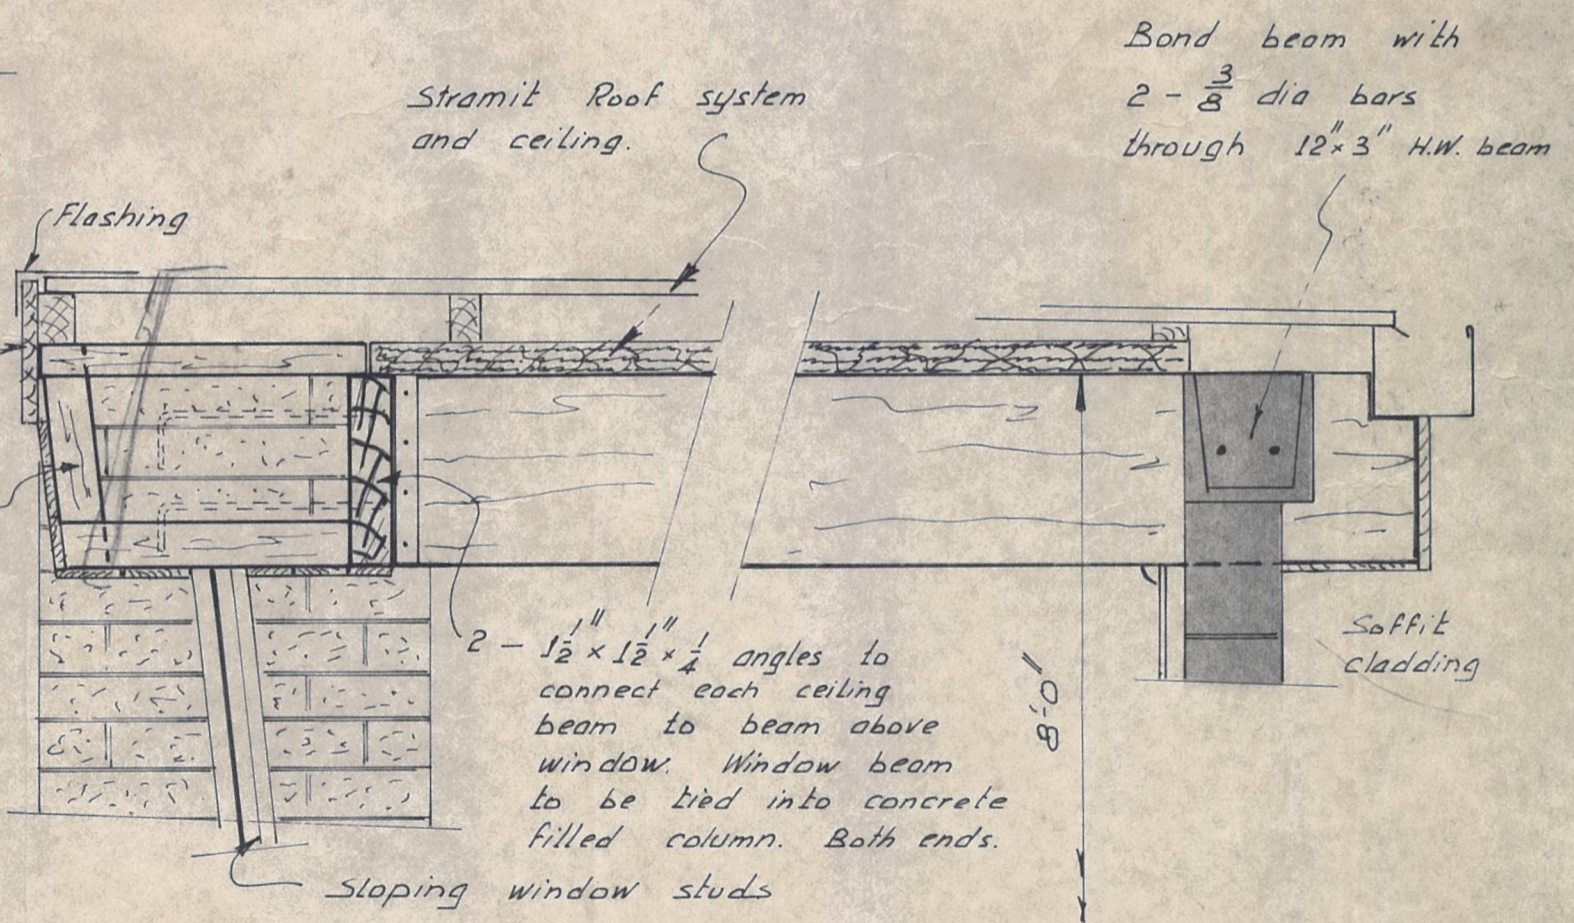 Bond beam with
2 - 3/8 dia bars
through 12" x 3" H.W. beam
Stramit Roof system
and ceiling.
Flashing
2 - 1 1/2" x 1 1/2" x 1/4 angles to
connect each ceiling
beam to beam above
window. Window beam
to be tied into concrete
filled column. Both ends.
8'-0"
Soffit
cladding
Sloping window studs